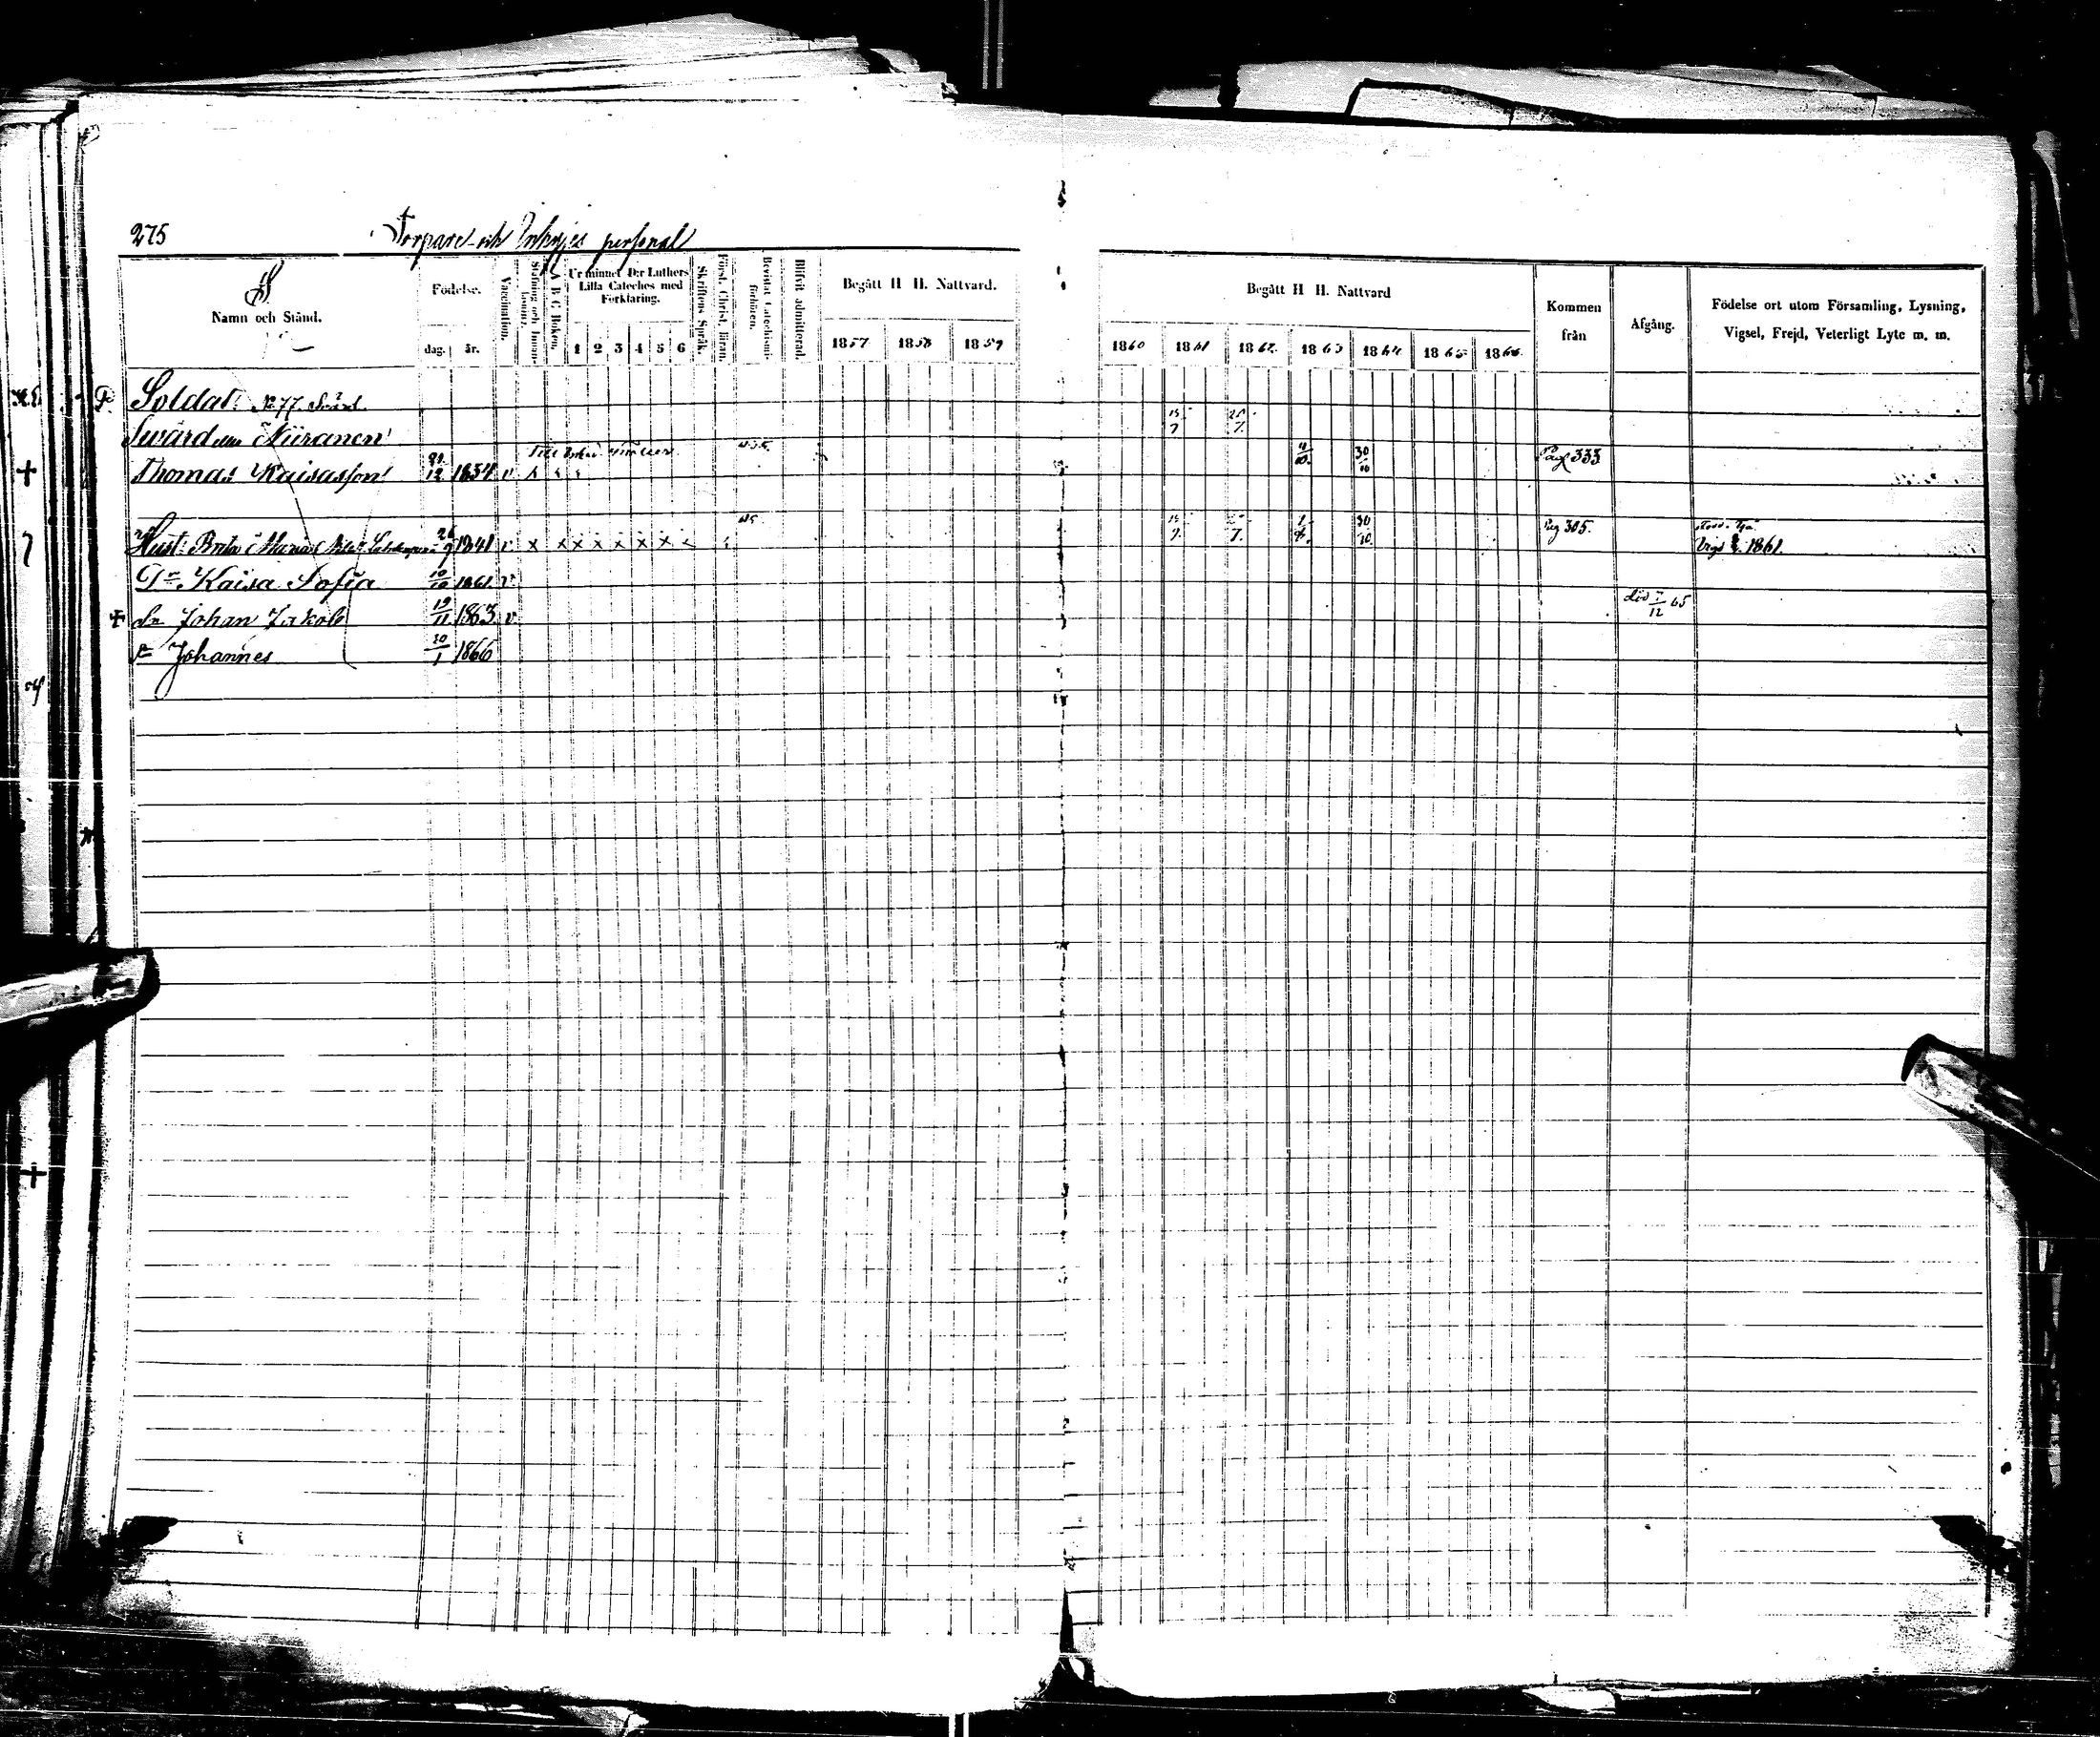 275
Torpare och Inhyses personal
Namn och Stånd.
Födelse.
dag. år.
Vaccination.
A B C Boken.
Ur minnet D:r Luthers Lilla Cateches med Förklaring.
1 2 3 4 5 6
Skriftens Språk.
Först. Christ. läran.
Bevistat Catechismi-förhören.
Blifvit admitterad.
Begått H H. Nattvard.
1857 1858 1859
Begått H H. Nattvard
1860 1861 1862 1863 1864 1865 1866
Kommen från
Afgång.
Födelse ort utom Församling, Lysning, Vigsel, Frejd, Veterligt Lyte m. m.
Soldat: No 77. Svärd
Swärd Niiranen
15/7 25/7
Thomas Kaisasson 12 1834 v
4/10 30/10 Pag 333
Hust: Brita Maria 1841 v x x x x x x x
30/10 Pag 305.
Vigd 1861.
Dr Kaisa Sofia 10/10 1861 v
Sn Johan Jakob 19/11 1863 v
död 7/12 65
Sn Johannes 20/1 1866